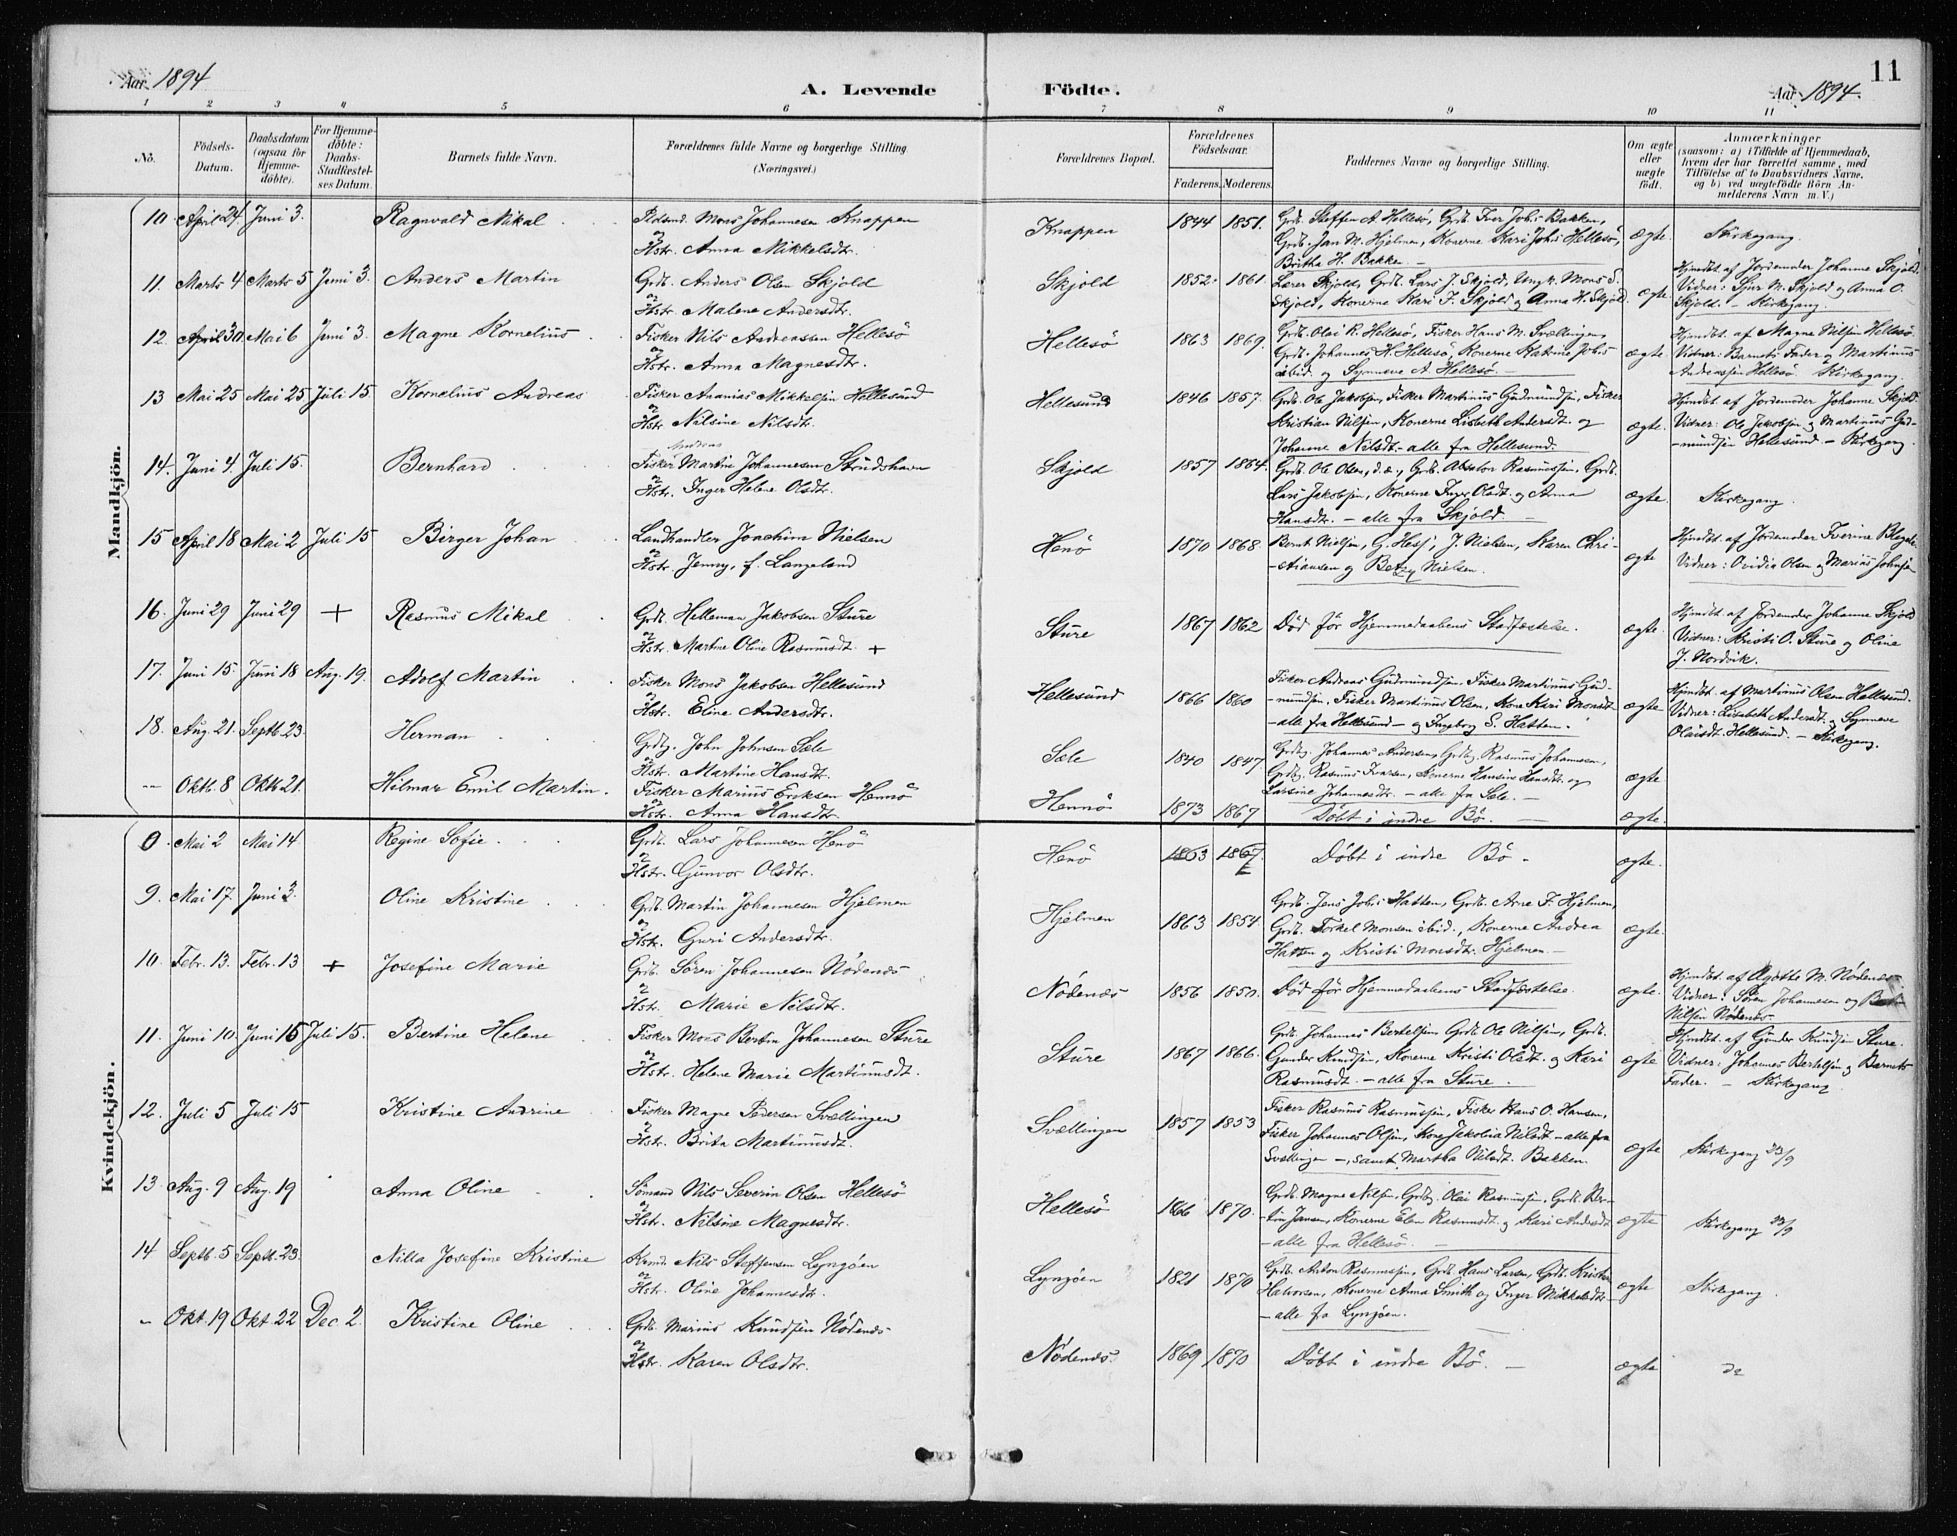 Aar 1894
A. Levende Födte.
Aar 1894.
11
1 2 3 4 5 6 7 8 9 10 11
No.
Födsels-Datum.
Daabsdatum (ogsaa for Hjemme-döbte).
For Hjemme-döbte: Daabs-Stadfæstel-ses Datum.
Barnets fulde Navn.
Forældrenes fulde Navne og borgerlige Stilling (Næringsvei.)
Forældrenes Bopæl.
Forældrenes Födselsaar.
Faderens. Moderens.
Faddernes Navne og borgerlige Stilling.
Om ægte eller uægte födt.
Anmærkninger
(saasom: a) i Tilfælde af Hjemmedaab, hvem der har forrettet samme, med Tilföielse af to Daabsvidners Navne, og b) ved uægtefödte Börn An-melderens Navn m. V.)
Mandkjön.
10. April 24 Juni 3. Ragnvald Mikal
Mons Johannesen Knappen
og
Hstr. Anna Mikkelsdtr.
Knappen 1844 1851.
Grdb. Steffen A. Hellesö, Grdb. Iver Johs Bakken,
Grdb. Jan M. Hjelmen, Konerne Kari Johs Hellesö,
Britha H. Bakke. —
Ægte. Kirkegang.
11. Marts 4 Marts 5 Juni 3. Anders Martin
Grdb. Anders Olsen Skjold
og
Hstr. Malene Andersdtr.
Skjold 1852. 1861.
Lærer Skjold, Grdb. Lars J. Skjold, Ungk. Mons S.
Skjold, Konerne Kari J. Skjold og Anna H. Skjold
ægte.
Hjmdbt. af Jordemoder Johanne Skjold.
Vidner: Sjur M. Skjold og Anna O.
Skjold. — Kirkegang.
12. April 30. Mai 6 Juni 3. Magne Kornelius
Fisker Nils Andreassen Hellesö
og
Hstr. Anna Magnesdtr.
Hellesö 1863 1869.
Grdb. Olai R. Hellesö, Fisker Hans M. Svællingen,
Grdb. Johannes H. Hellesö, Konerne Johs
ibid. og Synneve A. Hellesö. —
ægte.
Hjmdbt. af Magne Nilsen Hellesö
Vidner: Barnets Fader og Martinus
Andreasjen Hellesö. Kirkegang.
13 Mai 25 Mai 25 Juli 15. Kornelius Andreas
Fisker Ananias Mikkelsen Hellesund
og
Hstr. Nilsine Nilsdt.
Hellesund 1846 1857.
Grdb. Ole Jakobsen, Fisker Martinus Gudmundsen, Fisker
Kristian Nilsen, Konerne Lisbeth Andersdt. og
Johanne Nilsdt. – alle fra Hellesund.
ægte.
Hjmdbt. af Jordemoder Johanne Skjold.
Vidner: Ole Jakobsen og Martinus Gud-
-mundsen Hellesund — Kirkegang.
14. Juni 4. Juli 15. Bernhard
Fisker Martin Johannesen Strudshavn
og
Hstr. Inger Helene Olsdtr.
Skjold 1857 1864.
Grdb. Ole Olsen, d. æ., Grdb. Absalon Rasmussen, Grdb.
Lars Jakobsen, Konerne Inger Olsdt. og Anna
Hansdtr. — alle fra Skjold. —
ægte. Kirkegang.
15 April 18 Mai 2 Juli 15 Birger Johan
Landhandler Joachim Nielsen
og
Hstr. Jenny, f. Langeland
Henö 1870 1868.
Bernt Nielsen, G. J. Nielsen, Karen Chri-
-stiansen og Betzy Nielsen.
ægte
Hjmdbt. af Jordemoder
Vidner: Ovidia Olsen og Marius Johnsen
16. Juni 29 Juni 29 + Rasmus Mikal
Grdb. Helleman Jakobsen Sture
og
Hstr. Martine Oline Rasmusdt. +
Sture 1867 1862
Död för Hjemmedaabens Stadfæstelse.
ægte.
Hjmdbt. af Jordemoder Johanne Skjold
Vidner: Kristi O. Sture og Oline
J. Nordvik.
17. Juni 15. Juni 18 Aug. 19. Adolf Martin
Fisker Mons Jakobsen Hellesund
og
Hstr. Eline Andersdtr.
Hellesund 1866 1860
Fisker Andreas Gudmundsen. Fisker Martinus Gud-
-mundsen, Fisker Martinus Olsen, Kone Kari Monsdt
– alle fra Hellesund — og Ingeborg S. Hatten.
ægte.
Hjmdbt. af Martinus Olsen Hellesund.
Vidner: Lisabeth Andersdt. og Synneve
Olaisdt. Hellesund. — Kirkegang.
18. Aug. 21. Septb. 23. Herman
Grdbg. John Johnsen Sæle
og
Hstr. Martine Hansdt.
Sæle 1840 1847.
Grdbg. Johannes Andersen, Grdbg. Rasmus Johannesen,
Grdbg. Rasmus Ivarsen, Konerne Hansine Hansdt. og
Larsine Johannesdtr. — alle fra Sæle. —
ægte
-- Oktb. 8 Oktb 21. Hilmar Emil Martin.
Fisker Marius Eriksen Hennö
og
Hstr. Anna Hansdtr.
Hennö 1873 1867
Döbt i indre Bö. —
ægte.
Kvindekjön.
0. Mai 2 Mai 14. Regine Sofie
Grdb. Lars Johannesen Henö
og
Hstr. Gunvor Olsdtr.
Henö 1863 1867.
Döbt i indre Bö —
ægte.
9. Mai 17. Juni 3. Oline Kristine
Grdb. Martin Johannesen Hjelmen
og
Hstr. Guri Andersdtr.
Hjelmen 1863 1854.
Grdb. Jens Johs Hatten, Grdb. Arne F. Hjelmen,
Grdb. Torkel Monsen ibid., Konerne Andrea
Hatten og Kristi Monsdt. Hjelmen. —
ægte.
10. Febr. 13. Febr. 13 + Josefine Marie
Grdb. Sören Johannesen Nödenæs
og
Hstr. Marie Nilsdtr.
Nödenæs 1856 1850.
Död för Hjemmedaabens Stadfæstelse.
ægte.
Hjmdbt. af Agathe M. Nödenæs
Vidner: Sören Johannesen og
Nilsen Nödenæs
11. Juni 10. Juni 16 Juli 15. Bertine Helene
Fisker Mons Bertin Johannesen Sture
og
Hstr. Helene Marie Martinusdt.
Sture 1867 1866.
Grdb. Johannes Bertelsen, Grdb. Ole Nilsen, Grdb.
Gunder Knudsen, Konerne Kristi Olsdt. og Kari
Rasmusdt. — alle fra Sture.
ægte
Hjmdbt. af Gunder Knudsen Sture.
Vidner: Johannes Bertelsen og Barnets
Fader. — Kirkegang
12. Juli 5 Juli 15 Kristine Andrine
Fisker Magne Pedersen Svællingen
og
Hstr. Brita Martinusdt.
Svællingen 1857 1853
Fisker Rasmus Rasmussen, Fisker Hans O. Hansen,
Fisker Johannes Olsen, Kone Jakobia Nilsdt – alle fra
Svællingen —, samt Martha Nilsdt. Bakken.
ægte Kirkegang 23/9
13. Aug. 9 Aug. 19 Anna Oline
Sömand Nils Severin Olsen Hellesö
og
Hstr. Nilsine Magnesdtr.
Hellesö 1866 1870.
Grdb. Magne Nilsen, Grdbg. Olai Rasmussen, Grdb. Ber-
-tin Jansen, Konerne Elen Rasmusdt. og Kari Andersdt
– alle fra Hellesö. —
ægte Kirkegang 23/9
14 Septb. 5 Septb. 23. Nilla Josefine Kristine
Nils Steffensen Lyngöen
og
Hstr. Oline Johannesdt.
Lyngöen 1821 1870
Grdb. Anton Rasmussen, Grdb Hans Larsen, Grdb. Kristen
Halvorsen, Konerne Anna Smith og Inger Mikkelsdt
– alle fra Lyngöen.
ægte Kirkegang.
-- Okt 19 Okt 22 Dec 2. Kristine Oline
Grdb. Marius Knudsen Nödenæs
og
Hstr. Karen Olsdtr.
Nödenæs. 1869 1870
Döbt i indre Bö. —
ægte do